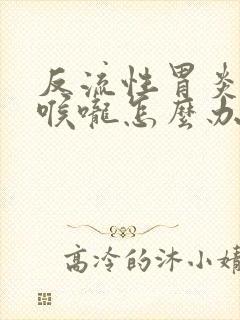 反流性胃炎
喉嚨怎麼办
高冷的沐小婧